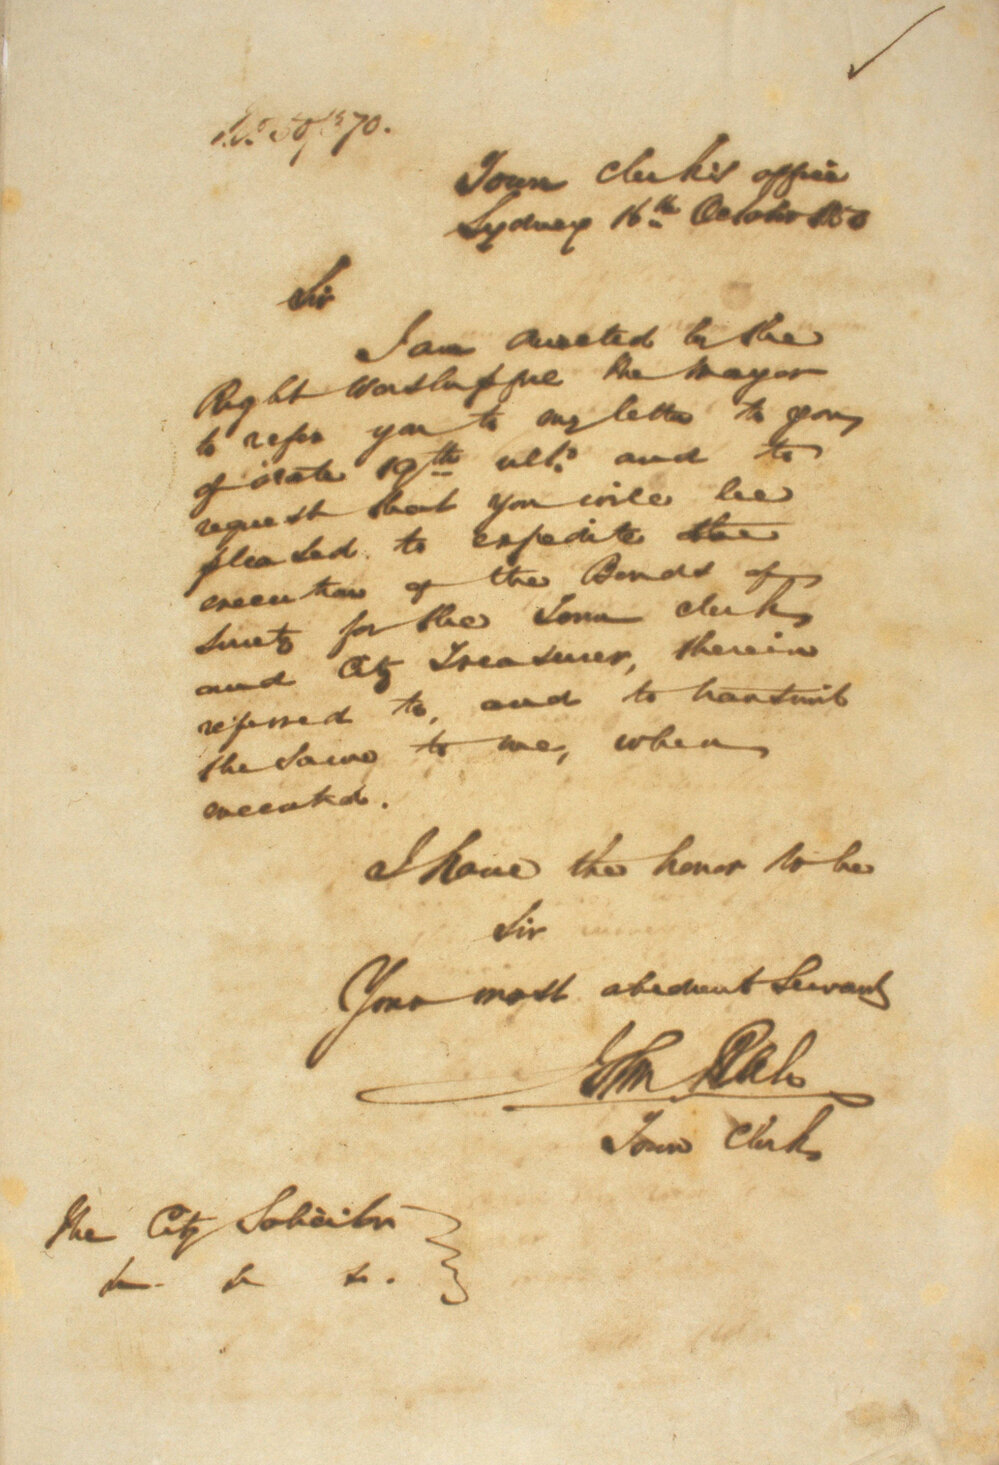 No. 50/570.
Town Clerk's office
Sydney 16th October 1850
Sir
I am directed by the
Right Worshipful the Mayor
to refer you to my letter to you
of date 19th ulto. and to
request that you will be
pleased to expedite the
execution of the Bonds of
Surety for the Town Clerk
and City Treasurer, therein
referred to, and to transmit
the Same to me, when
executed.
I have the honor to be
Sir
Your most obedient Servant
John
Town Clerk
The City Solicitor
&c. &c &c.